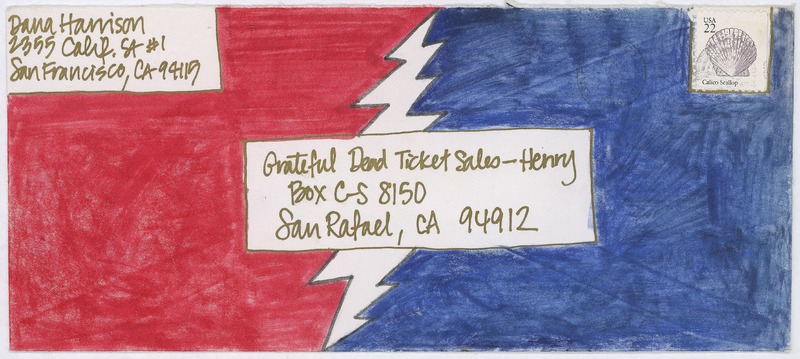 Dana Harrison
2355 Calif. St #1
San Francisco, CA 94115
USA
22
Calico Scallop
Grateful Dead Ticket Sales — Henry
Box C-S 8150
San Rafael, CA 94912